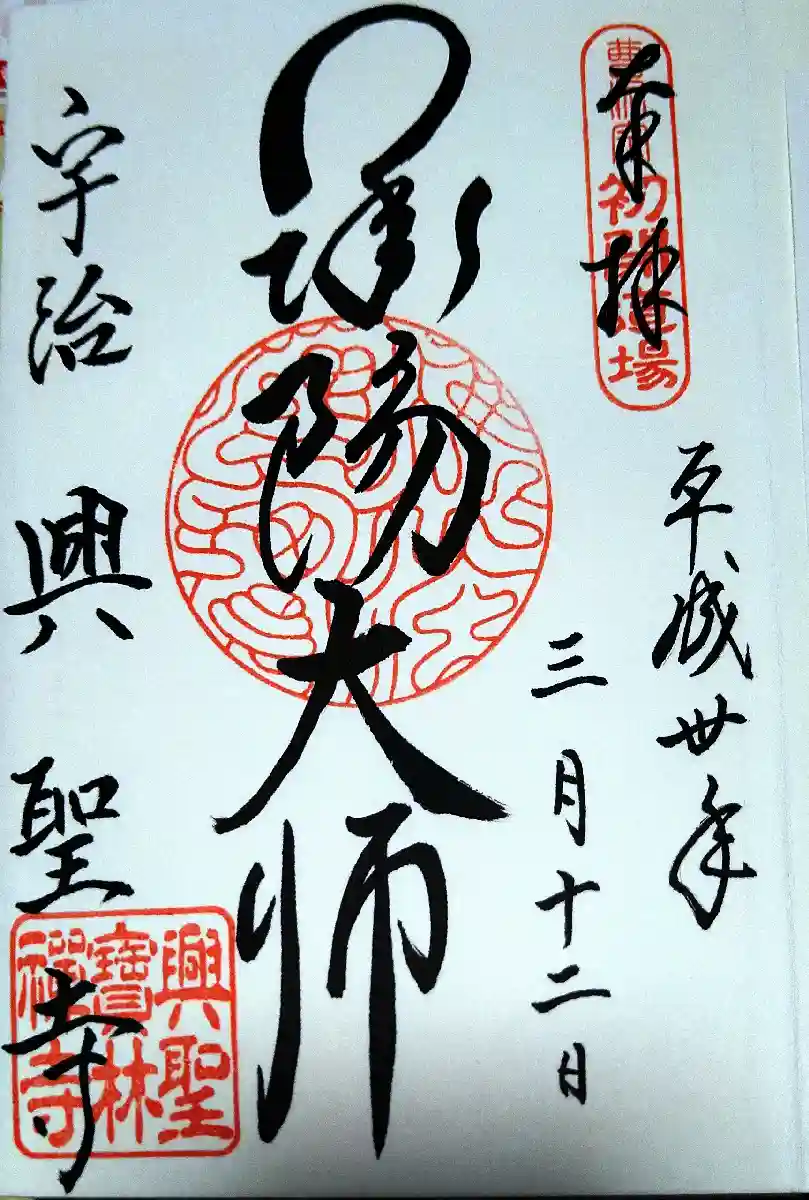 奉拝
初開道場
平成丗年
三月十二日
承陽大師
宇治 興聖寺
興聖
寶林
禪寺